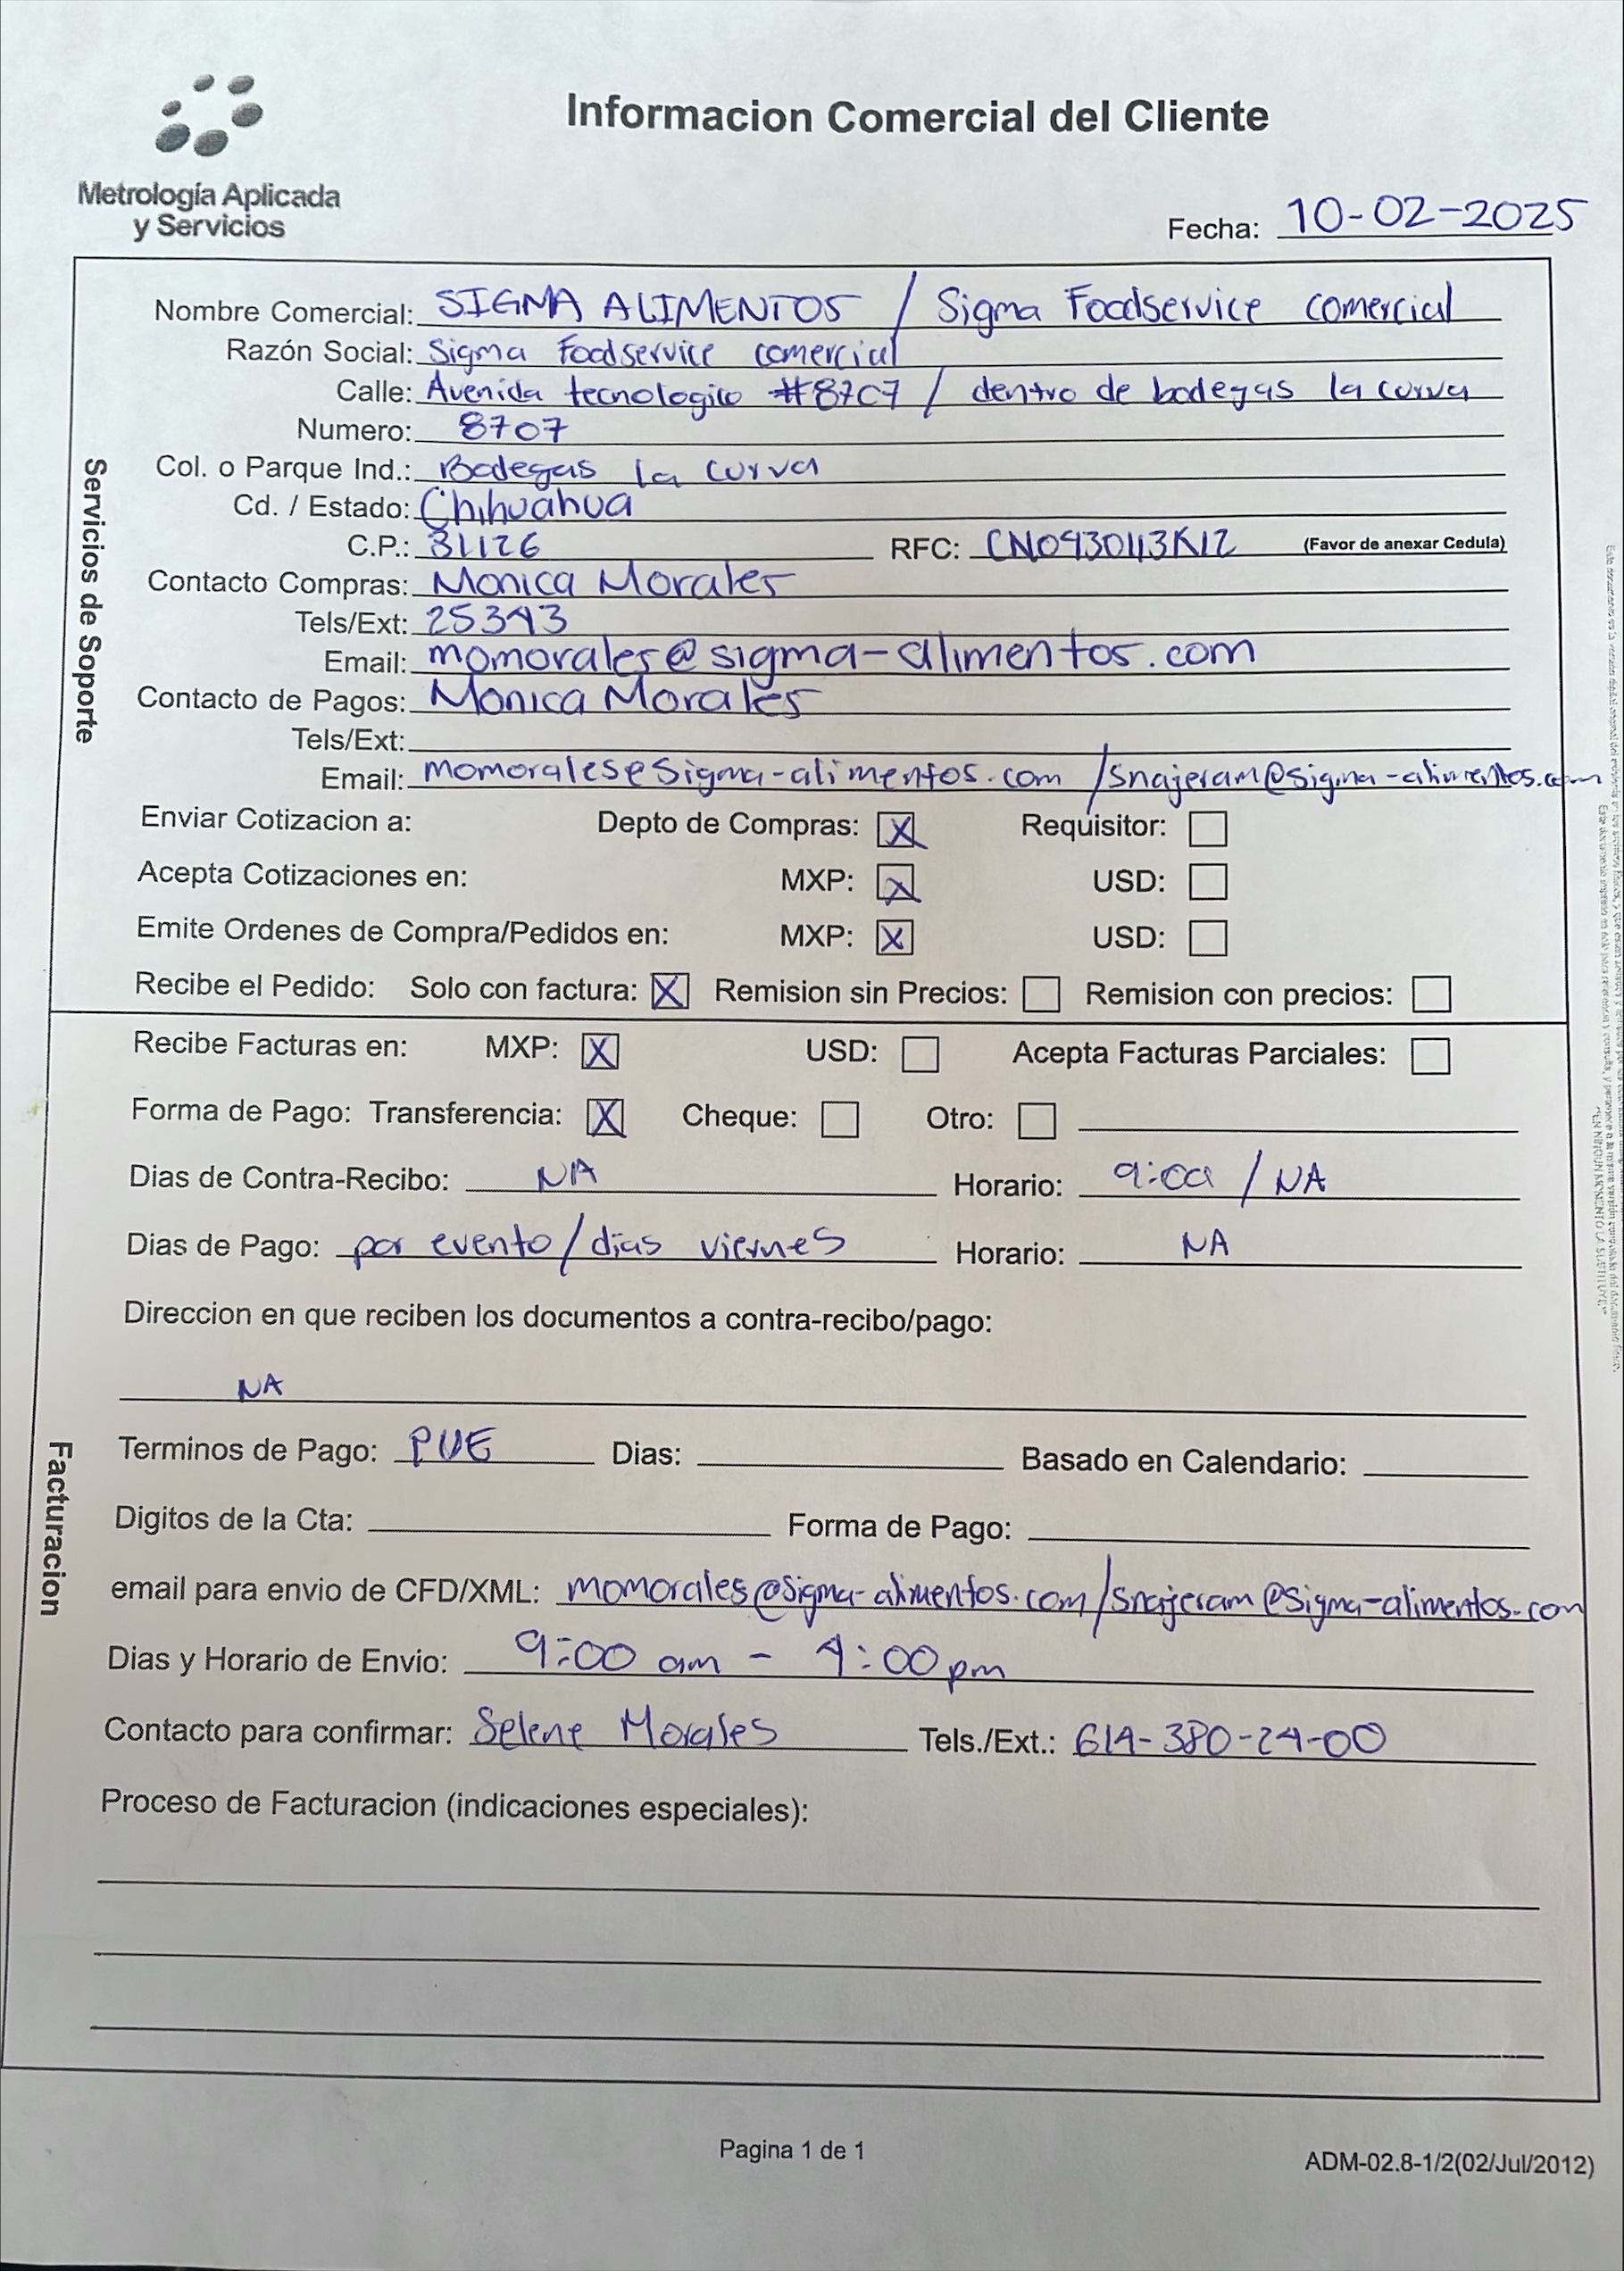 Informacion Comercial del Cliente
Metrología Aplicada
y Servicios
Fecha: 10-02-2025
Servicios de Soporte
Nombre Comercial: SIGMA ALIMENTOS / Sigma Foodservice comercial
Razón Social: Sigma Foodservice comercial
Calle: Avenida tecnologico #8707 / dentro de bodegas la curva
Numero: 8707
Col. o Parque Ind.: Bodegas la curva
Cd. / Estado: Chihuahua
C.P.: 31126 RFC: CNO430113K12 (Favor de anexar Cedula)
Contacto Compras: Monica Morales
Tels/Ext: 25343
Email: momorales@sigma-alimentos.com
Contacto de Pagos: Monica Morales
Tels/Ext:
Email: momorales@sigma-alimentos.com /snajeram@sigma-alimentos.com
Enviar Cotizacion a: Depto de Compras: X Requisitor:
Acepta Cotizaciones en: MXP: X USD:
Emite Ordenes de Compra/Pedidos en: MXP: X USD:
Recibe el Pedido: Solo con factura: X Remision sin Precios: Remision con precios:
Facturacion
Recibe Facturas en: MXP: X USD: Acepta Facturas Parciales:
Forma de Pago: Transferencia: X Cheque: Otro:
Dias de Contra-Recibo: NA Horario: 9:00 / NA
Dias de Pago: por evento/dias viernes Horario: NA
Direccion en que reciben los documentos a contra-recibo/pago:
NA
Terminos de Pago: PUE Dias: Basado en Calendario:
Digitos de la Cta: Forma de Pago:
email para envio de CFD/XML: momorales@sigma-alimentos.com/snajeram@sigma-alimentos.com
Dias y Horario de Envio: 9:00 am - 4:00 pm
Contacto para confirmar: Selene Morales Tels./Ext.: 614-380-24-00
Proceso de Facturacion (indicaciones especiales):
Pagina 1 de 1
ADM-02.8-1/2(02/Jul/2012)